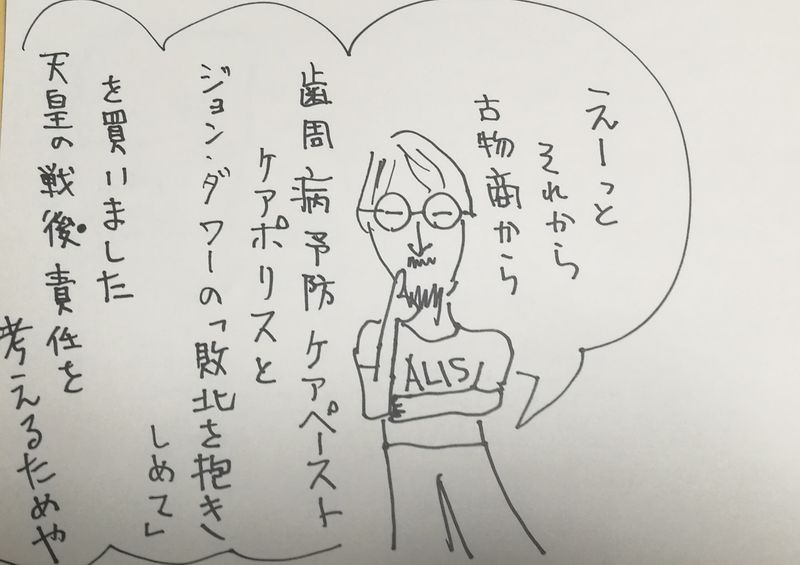 えーっと
それから
古物商から
歯周病予防ケアペースト
ケアポリスと
ジョン・ダワーの「敗北を抱き
しめて」
を買いました
天皇の戦後責任を
考えるためや
ALIS